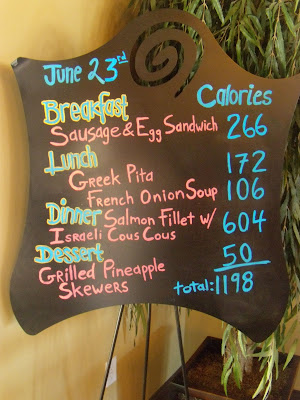 June 23rd
Calories
Breakfast
Sausage & Egg Sandwich 266
Lunch
Greek Pita 172
French Onion Soup 106
Dinner Salmon Fillet w/ 604
Israeli Cous Cous
Dessert 50
Grilled Pineapple
Skewers total: 1198